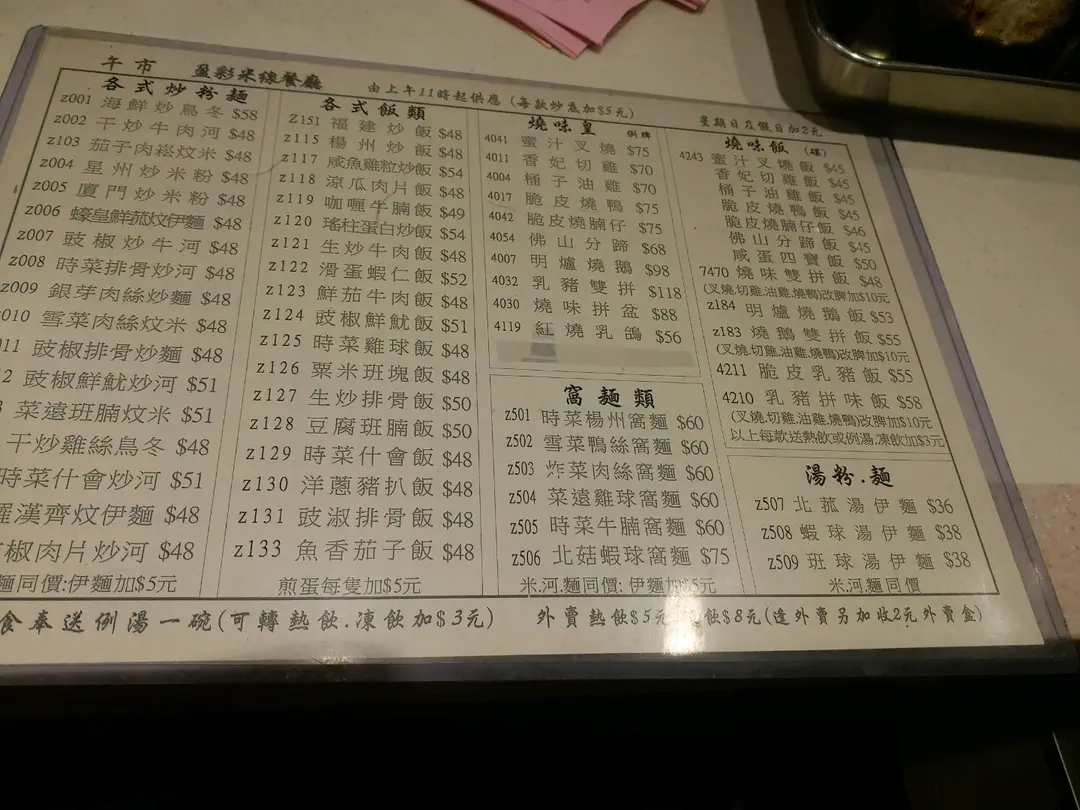 午市 盈彩米線餐廳 由上午11時起供應(每款炒底加$5元) 星期日及假日加2元
各式炒粉麵
z001 海鮮炒烏冬 $58
z002 干炒牛肉河 $48
z103 茄子肉崧炆米 $48
z004 星州炒米粉 $48
z005 廈門炒米粉 $48
z006 蠔皇鮮菰炆伊麵 $48
z007 豉椒炒牛河 $48
z008 時菜排骨炒河 $48
z009 銀芽肉絲炒麵 $48
010 雪菜肉絲炆米 $48
11 豉椒排骨炒麵 $48
2 豉椒鮮魷炒河 $51
菜遠班腩炆米 $51
干炒雞絲烏冬 $48
時菜什會炒河 $51
羅漢齊炆伊麵 $48
椒肉片炒河 $48
麵同價:伊麵加$5元
各式飯類
Z151 福建炒飯 $48
z115 楊州炒飯 $48
z117 咸魚雞粒炒飯 $54
z118 涼瓜肉片飯 $48
z119 咖喱牛腩飯 $49
z120 瑤柱蛋白炒飯 $54
z121 生炒牛肉飯 $48
z122 滑蛋蝦仁飯 $52
z123 鮮茄牛肉飯 $48
z124 豉椒鮮魷飯 $51
z125 時菜雞球飯 $48
z126 粟米班塊飯 $48
z127 生炒排骨飯 $50
z128 豆腐班腩飯 $50
z129 時菜什會飯 $48
z130 洋蔥豬扒飯 $48
z131 豉淑排骨飯 $48
z133 魚香茄子飯 $48
煎蛋每隻加$5元
燒味皇 例牌
4041 蜜汁叉燒 $75
4011 香妃切雞 $70
4004 桶子油雞 $70
4017 脆皮燒鴨 $75
4042 脆皮燒腩仔 $75
4054 佛山分蹄 $68
4007 明爐燒鵝 $98
4032 乳豬雙拼 $118
4030 燒味拼盆 $88
4119 紅燒乳鴿 $56
窩麵類
z501 時菜楊州窩麵 $60
z502 雪菜鴨絲窩麵 $60
z503 炸菜肉絲窩麵 $60
z504 菜遠雞球窩麵 $60
z505 時菜牛腩窩麵 $60
z506 北菇蝦球窩麵 $75
米.河.麵同價: 伊麵加$5元
燒味飯 (碟)
4243 蜜汁叉燒飯 $45
香妃切雞飯 $45
桶子油雞飯 $45
脆皮燒鴨飯 $45
脆皮燒腩仔飯 $46
佛山分蹄飯 $45
咸蛋四寶飯 $50
7470 燒味雙拼飯 $48
(叉燒,切雞,油雞,燒鴨)改脾加$10元
z184 明爐燒鵝飯 $53
z183 燒鵝雙拼飯 $55
(叉燒,切雞,油雞,燒鴨)改脾加$10元
4211 脆皮乳豬飯 $55
4210 乳豬拼味飯 $58
(叉燒,切雞,油雞,燒鴨)改脾加$10元
以上每款送熱飲或例湯,凍飲加$3元
湯粉.麵
z507 北菰湯伊麵 $36
z508 蝦球湯伊麵 $38
z509 班球湯伊麵 $38
米.河.麵同價
食奉送例湯一碗(可轉熱飲.凍飲加$3元) 外賣熱飲$5元 飲$8元(逢外賣另加收2元外賣盒)